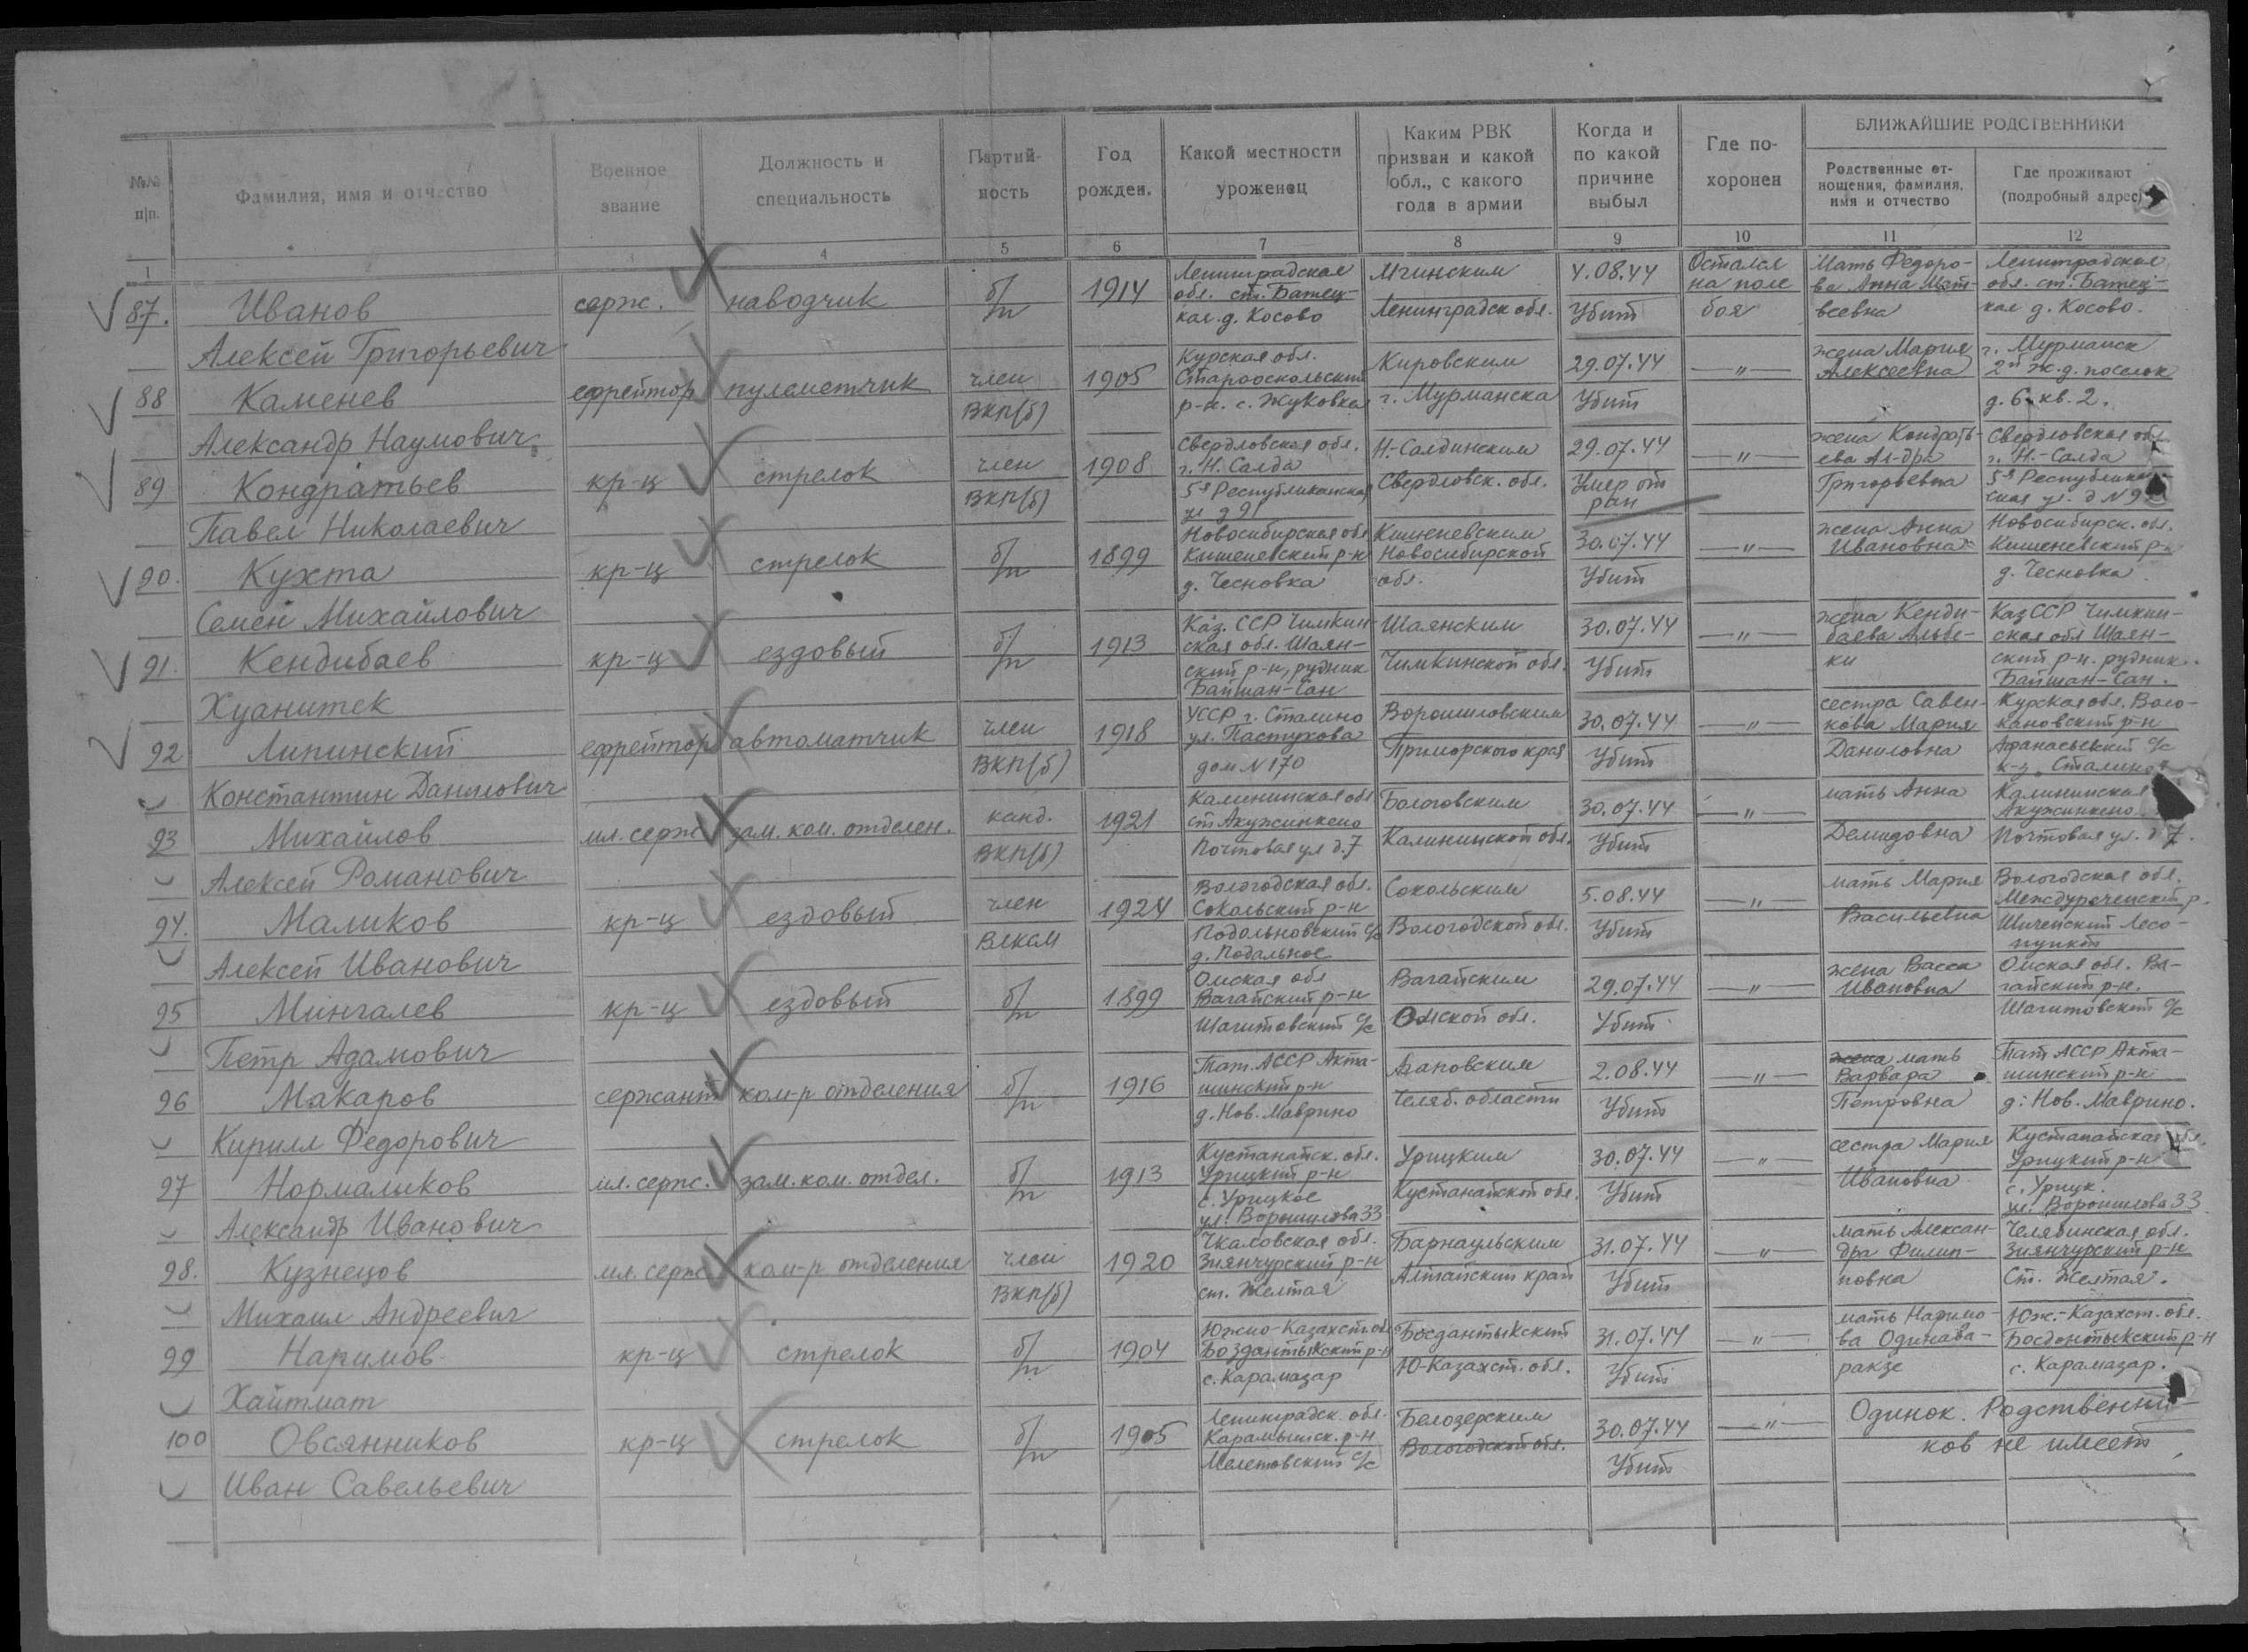 №№ п|п.
Фамилия, имя и отчество
Военное звание
Должность и специальность
Партий- ность
Год рожден.
Какой местности уроженец
Каким РВК призван и какой обл., с какого года в армии
Когда и по какой причине выбыл
Где по- хоронен
БЛИЖАЙШИЕ РОДСТВЕННИКИ
Родственные от- ношения, фамилия, имя и отчество
Где проживают (подробный адрес)
1 2 3 4 5 6 7 8 9 10 11 12
87. Иванов Алексей Григорьевич
серж.
наводчик
б/п
1914
Ленинградская
обл. ст. Батец-
кая д. Косово
Мгинским
Ленинградск обл.
4.08.44
Убит
Остался
на поле
боя
Мать Федоро-
ва Анна Мат-
веевна
Ленинградская
обл. ст. Батец-
кая д. Косово.
88 Каменев Александр Наумович
ефрейтор
пулеметчик
член
ВКП(б)
1905
Курская обл.
Старооскольский
р-н. с. Жуковка
Кировским
г. Мурманска
29.07.44
Убит
—"—
жена Мария
Алексеевна
г. Мурманск
2й ж.д. поселок
д. 6 кв. 2.
89 Кондратьев Павел Николаевич
кр-ц
стрелок
член
ВКП(б)
1908
Свердловская обл.
г. Н. Салда
5я Республиканская
ул д 91
Н-Салдинским
Свердловск. обл.
29.07.44
Умер от
ран
—"—
жена Кондрать-
ева Ал-дра
Григорьевна
Свердловская обл
г. Н.-Салда
5я Республикан
ская ул. д N 9
90. Кухта Семен Михайлович
кр-ц
стрелок
б/п
1899
Новосибирская обл
Кишеневский р-н
д. Чесновка
Кишеневским
Новосибирской
обл.
30.07.44
Убит
—"—
жена Анна
Ивановна
Новосибирск. обл.
Кишеневский р-н
д. Чесновка
91. Кендибаев Хуанитек
кр-ц
ездовый
б/п
1913
Каз. ССР Чимкин-
ская обл. Шаян-
ский р-н, рудник
Байшан-Сан
Шаянским
Чимкинской обл.
30.07.44
Убит
—"—
жена Кенди-
баева Альбе-
ки
Каз ССР Чимкин-
ская обл Шаян-
ский р-н. рудник.
Байшан-Сан.
92 Липинский Константин Данилович
ефрейтор
автоматчик
член
ВКП(б)
1918
УССР г. Сталино
ул. Пастухова
дом N 170
Ворошиловским
Приморского края
30.07.44
Убит
—"—
сестра Савен-
кова Мария
Даниловна
Курская обл. Воло-
кановский р-н
Афанасьевский с/с
к-з Сталина
93 Михайлов Алексей Романович
мл. серж
зам. ком. отделен.
канд.
ВКП(б)
1921
Калининская обл
ст Акужинкено
Почтовая ул д. 7
Бологовским
Калининской обл.
30.07.44
Убит
—"—
мать Анна
Демидовна
Калининская
Акужинкено
Почтовая ул. д 7.
94. Маликов Алексей Иванович
кр-ц
ездовый
член
ВЛКСМ
1924
Вологодская обл.
Сокольский р-н
Подольновский с/с
д. Подольное
Сокольским
Вологодской обл.
5.08.44
Убит
—"—
мать Мария
Васильевна
Вологодская обл.
Междуреченский р.
Шиченский Лесо-
пункт
95 Мингалев Петр Адамович
кр-ц
ездовый
б/п
1899
Омская обл
Вагайский р-н
Шагитовский с/с
Вагайским
Омской обл.
29.07.44
Убит
—"—
жена Васса
Ивановна
Омская обл. Ва-
гайский р-н.
Шагитовский с/с
96 Макаров Кирилл Федорович
сержант
ком-р отделения
б/п
1916
Тат. АССР Акта-
шинский р-н
д. Нов. Маврино
Агаповским
Челяб. области
2.08.44
Убит
—"—
жена мать
Варвара
Петровна
Тат АССР Акта-
шинский р-н
д. Нов. Маврино.
97 Нормаликов Александр Иванович
мл. серж.
зам. ком. отдел.
б/п
1913
Кустанайск. обл.
Урицкий р-н
с. Урицкое
ул. Ворошилова 33
Урицким
Кустанайской обл.
30.07.44
Убит
—"—
сестра Мария
Ивановна
Кустанайская обл.
Урицкий р-н
с. Урицк.
ул. Ворошилова 33
98. Кузнецов Михаил Андреевич
мл. серж
ком-р отделения
член
ВКП(б)
1920
Чкаловская обл.
Зиянчурский р-н
ст. Желтая
Барнаульским
Алтайский край
31.07.44
Убит
—"—
мать Алексан-
дра Филип-
повна
Челябинская обл.
Зиянчурский р-н
Ст. Желтая.
99 Наримов Хайтмат
кр-ц
стрелок
б/п
1904
Южно-Казахст. обл
Бозданты­кский р-н
с. Карамазар
Босдантыкский
Ю-Казахст. обл.
31.07.44
Убит
—"—
мать Наримо-
ва Одинава-
ракзе
Юж.-Казахст. обл.
Босдонтыкский р-н
с. Карамазар.
100 Овсянников Иван Савельевич
кр-ц
стрелок
б/п
1905
Ленинградск. обл.
Карамышск. р-н
Мелетовский с/с
Белозерским
Вологодской обл.
30.07.44
Убит
—"—
Одинок. Родственни-
ков не имеет